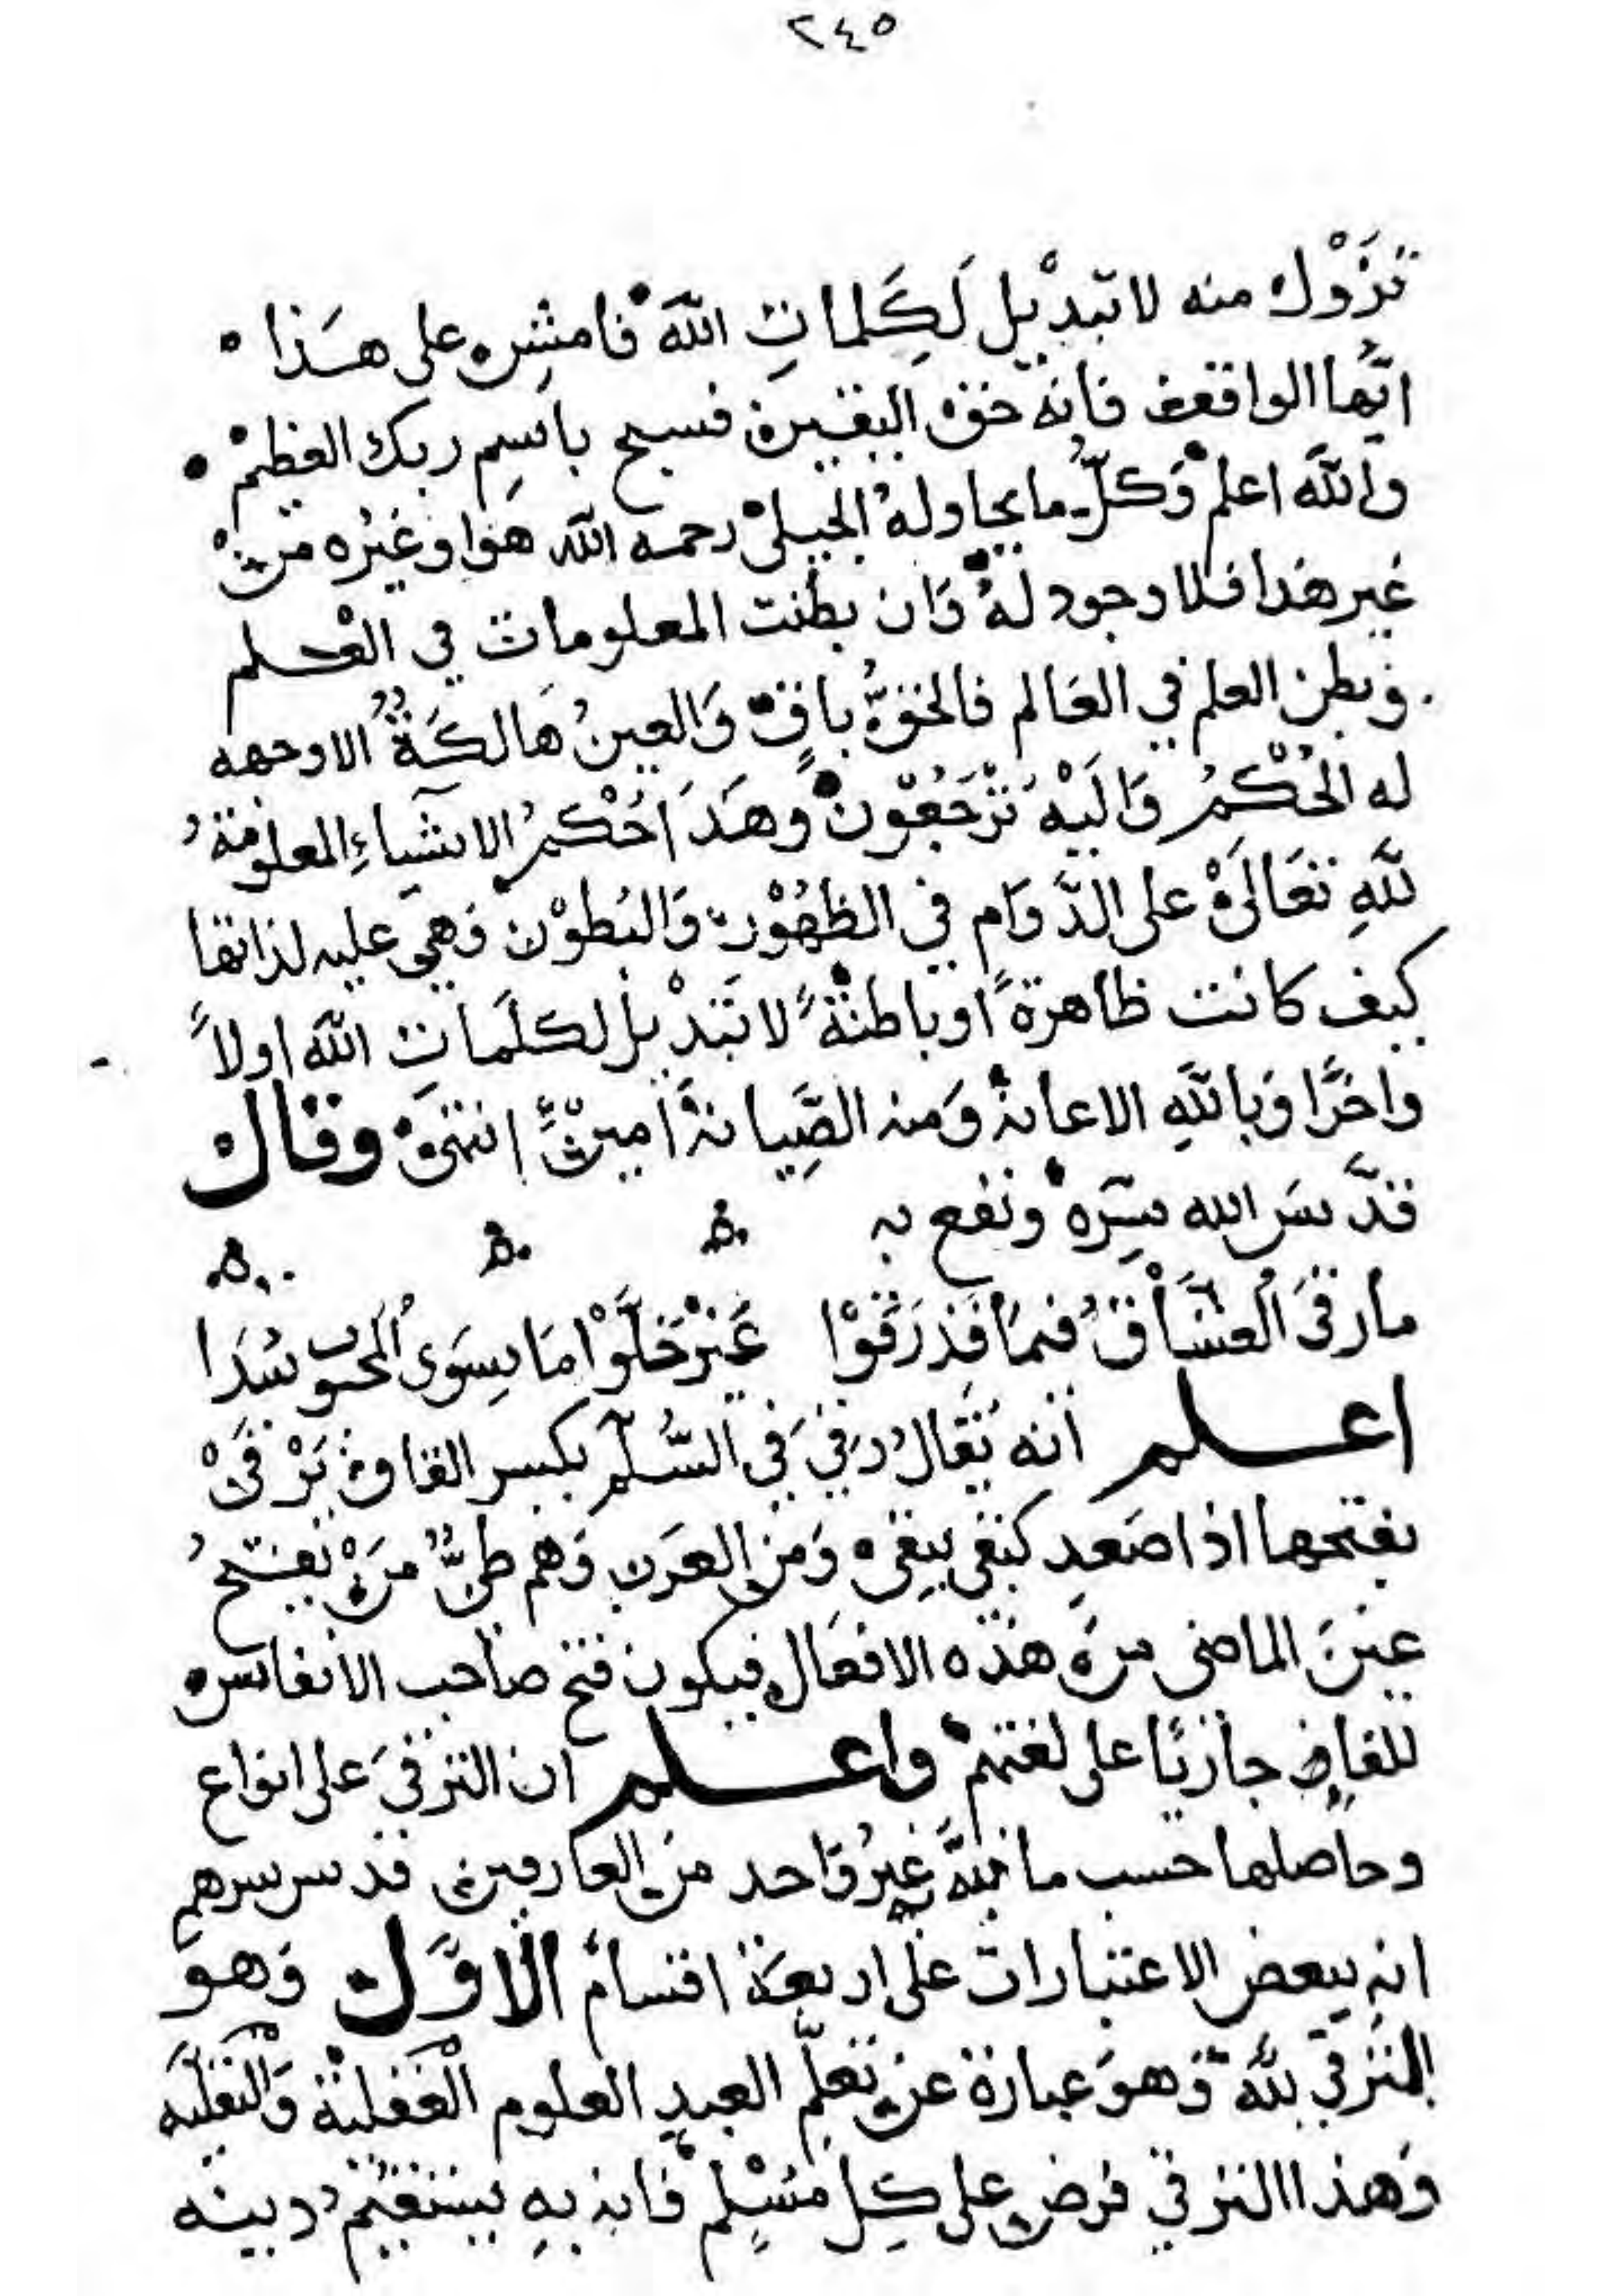 ٢٤٥
تزول منه لا تبديل لكلمات الله فامش على هذا
ايها الواقف فانه حق اليقين فسبح باسم ربك العظيم
والله اعلم وكل ما يحاوله الجيلي رحمه الله هو او غيره من
غير هذا فلا وجود له وان بطنت المعلومات في العلم
وبطن العلم في العالم فالحق باق والعين هالكة الا وجهه
له الحكم واليه ترجعون وهذا حكم الاشياء المعلومة
لله تعالى على الدوام في الظهور والبطون وهي عليه لذاتها
كيف كانت ظاهرة او باطنة لا تبديل لكلمات الله اولاً
واخرًا وبالله الاعانة ومنه الصيانة امين انتهى وقال
قدس الله سره ونفع به
ما رقى العشاق فيما قد رقوا عن خلوا ما سوى المحبوب سدا
اعلم انه يقال رقي في السلم بكسر القاف يرقى
بفتحها اذا صعد كبقي يبقى ومن العرب وهم طي من يفتح
عين الماضي من هذه الافعال فيكون فتح صاحب الانفاس
للقاف جاريًا على لغتهم واعلم ان الترقي على انواع
وحاصلها حسب ما نبه غير واحد من العارفين قدس سرهم
انه ببعض الاعتبارات على اربعة اقسام الاول وهو
الترقي لله وهو عبارة عن تعلم العبد العلوم العقلية والنقلية
وهذا الترقي فرض على كل مسلم فانه به يستقيم دينه